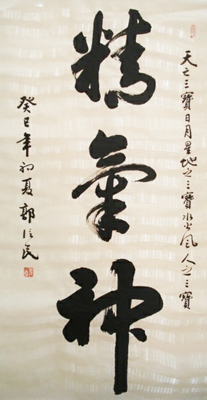 天之三寶日月星地之三寶水火風人之三寶
精氣神
癸巳年初夏郭仁民